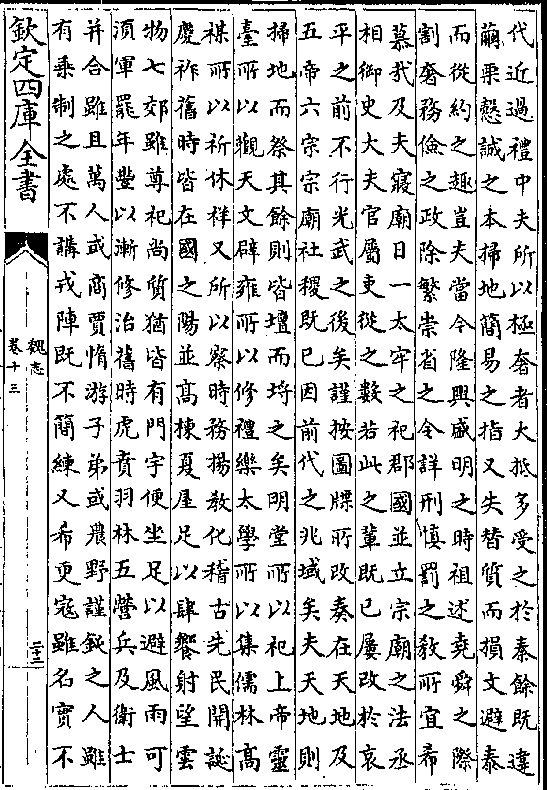 代近過禮中夫所以極奢者大抵多受之於秦餘既違
繭栗慤誠之本掃地簡易之指又失替質而損文避泰
而從約之趣豈夫當今隆興盛明之時祖述堯舜之際
割奢務儉之政除繁崇省之令詳刑慎罰之教所宜希
慕哉及夫寢廟日一太牢之祀郡國並立宗廟之法丞
相御史大夫官屬吏從之數若此之輩既已屢改於哀
平之前不行光武之後矣謹按圖牒所改奏在天地及
五帝六宗宗廟社稷既已因前代之兆域矣夫天地則
掃地而祭其餘則皆壇而埒之矣明堂所以祀上帝靈
臺所以觀天文辟雍所以修禮樂太學所以集儒林高
禖所以祈休祥又所以察時務揚教化稽古先民開誕
慶祚舊時皆在國之陽並高棟夏屋足以肆饗射望雲
物七郊雖尊祀尚質猶皆有門宇便坐足以避風雨可
須軍罷年豐以漸修治舊時虎賁羽林五營兵及衛士
并合雖且萬人或商賈惰游子弟或農野謹鈍之人雖
有乘制之處不講戎陣既不簡練又希更寇雖名實不
欽定四庫全書
魏志
卷十三
二十二